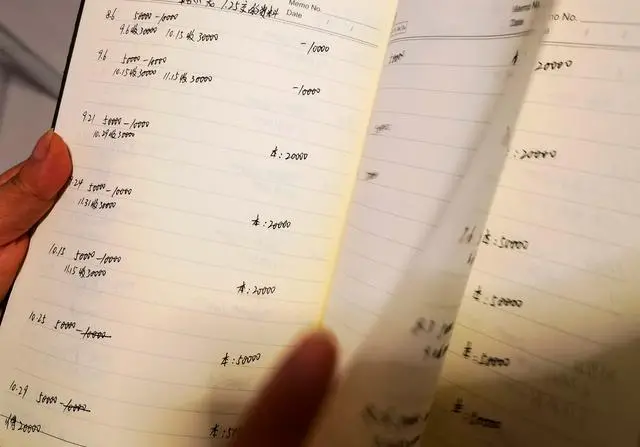 1.25支的材料
Memo No.
Date
8.6 50000-10000
9.6收30000 10.15收30000
-10000
9.6 50000-10000
10.15收30000 11.15收30000
-10000
9.21 50000-10000
10.29收30000
本:20000
9.24 50000-10000
11.31收30000
本:20000
10.15 50000-10000
11.15收30000
本:20000
10.25 50000-10000
本:50000
10.29 50000-10000
待20000
Memo No.
Date
本
20000
:20000
本:50000
本:50000
本:50000